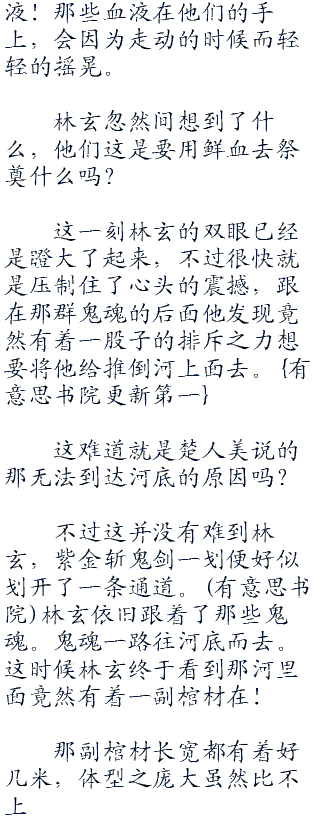 液！那些血液在他们的手
上，会因为走动的时候而轻
轻的摇晃。
林玄忽然间想到了什
么，他们这是要用鲜血去祭
奠什么吗？
这一刻林玄的双眼已经
是瞪大了起来，不过很快就
是压制住了心头的震撼，跟
在那群鬼魂的后面他发现竟
然有着一股子的排斥之力想
要将他给推倒河上面去。{有
意思书院更新第一}
这难道就是楚人美说的
那无法到达河底的原因吗？
不过这并没有难到林
玄，紫金斩鬼剑一划便好似
划开了一条通道。(有意思书
院)林玄依旧跟着了那些鬼
魂。鬼魂一路往河底而去。
这时候林玄终于看到那河里
面竟然有着一副棺材在！
那副棺材长宽都有着好
几米，体型之庞大虽然比不
上